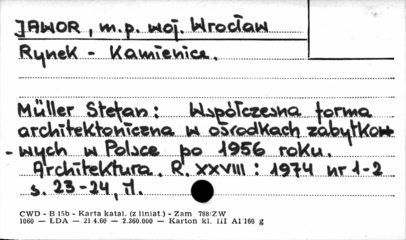 JAWOR, m.p. woj. Wrocław
Rynek - Kamienice.
Müller Stefan: Współczesna forma
architektoniczna w ośrodkach zabytkow
-wych w Polsce po 1956 roku.
Architektura. R. XXVIII: 1974 nr 1-2
s. 23-24, il.
CWD - B 15b - Karta katal. (z liniat.) - Zam 788/ZW
1060 — ŁDA — 21.4.60 — 2.360.000 — Karton kl. III A1 160 g